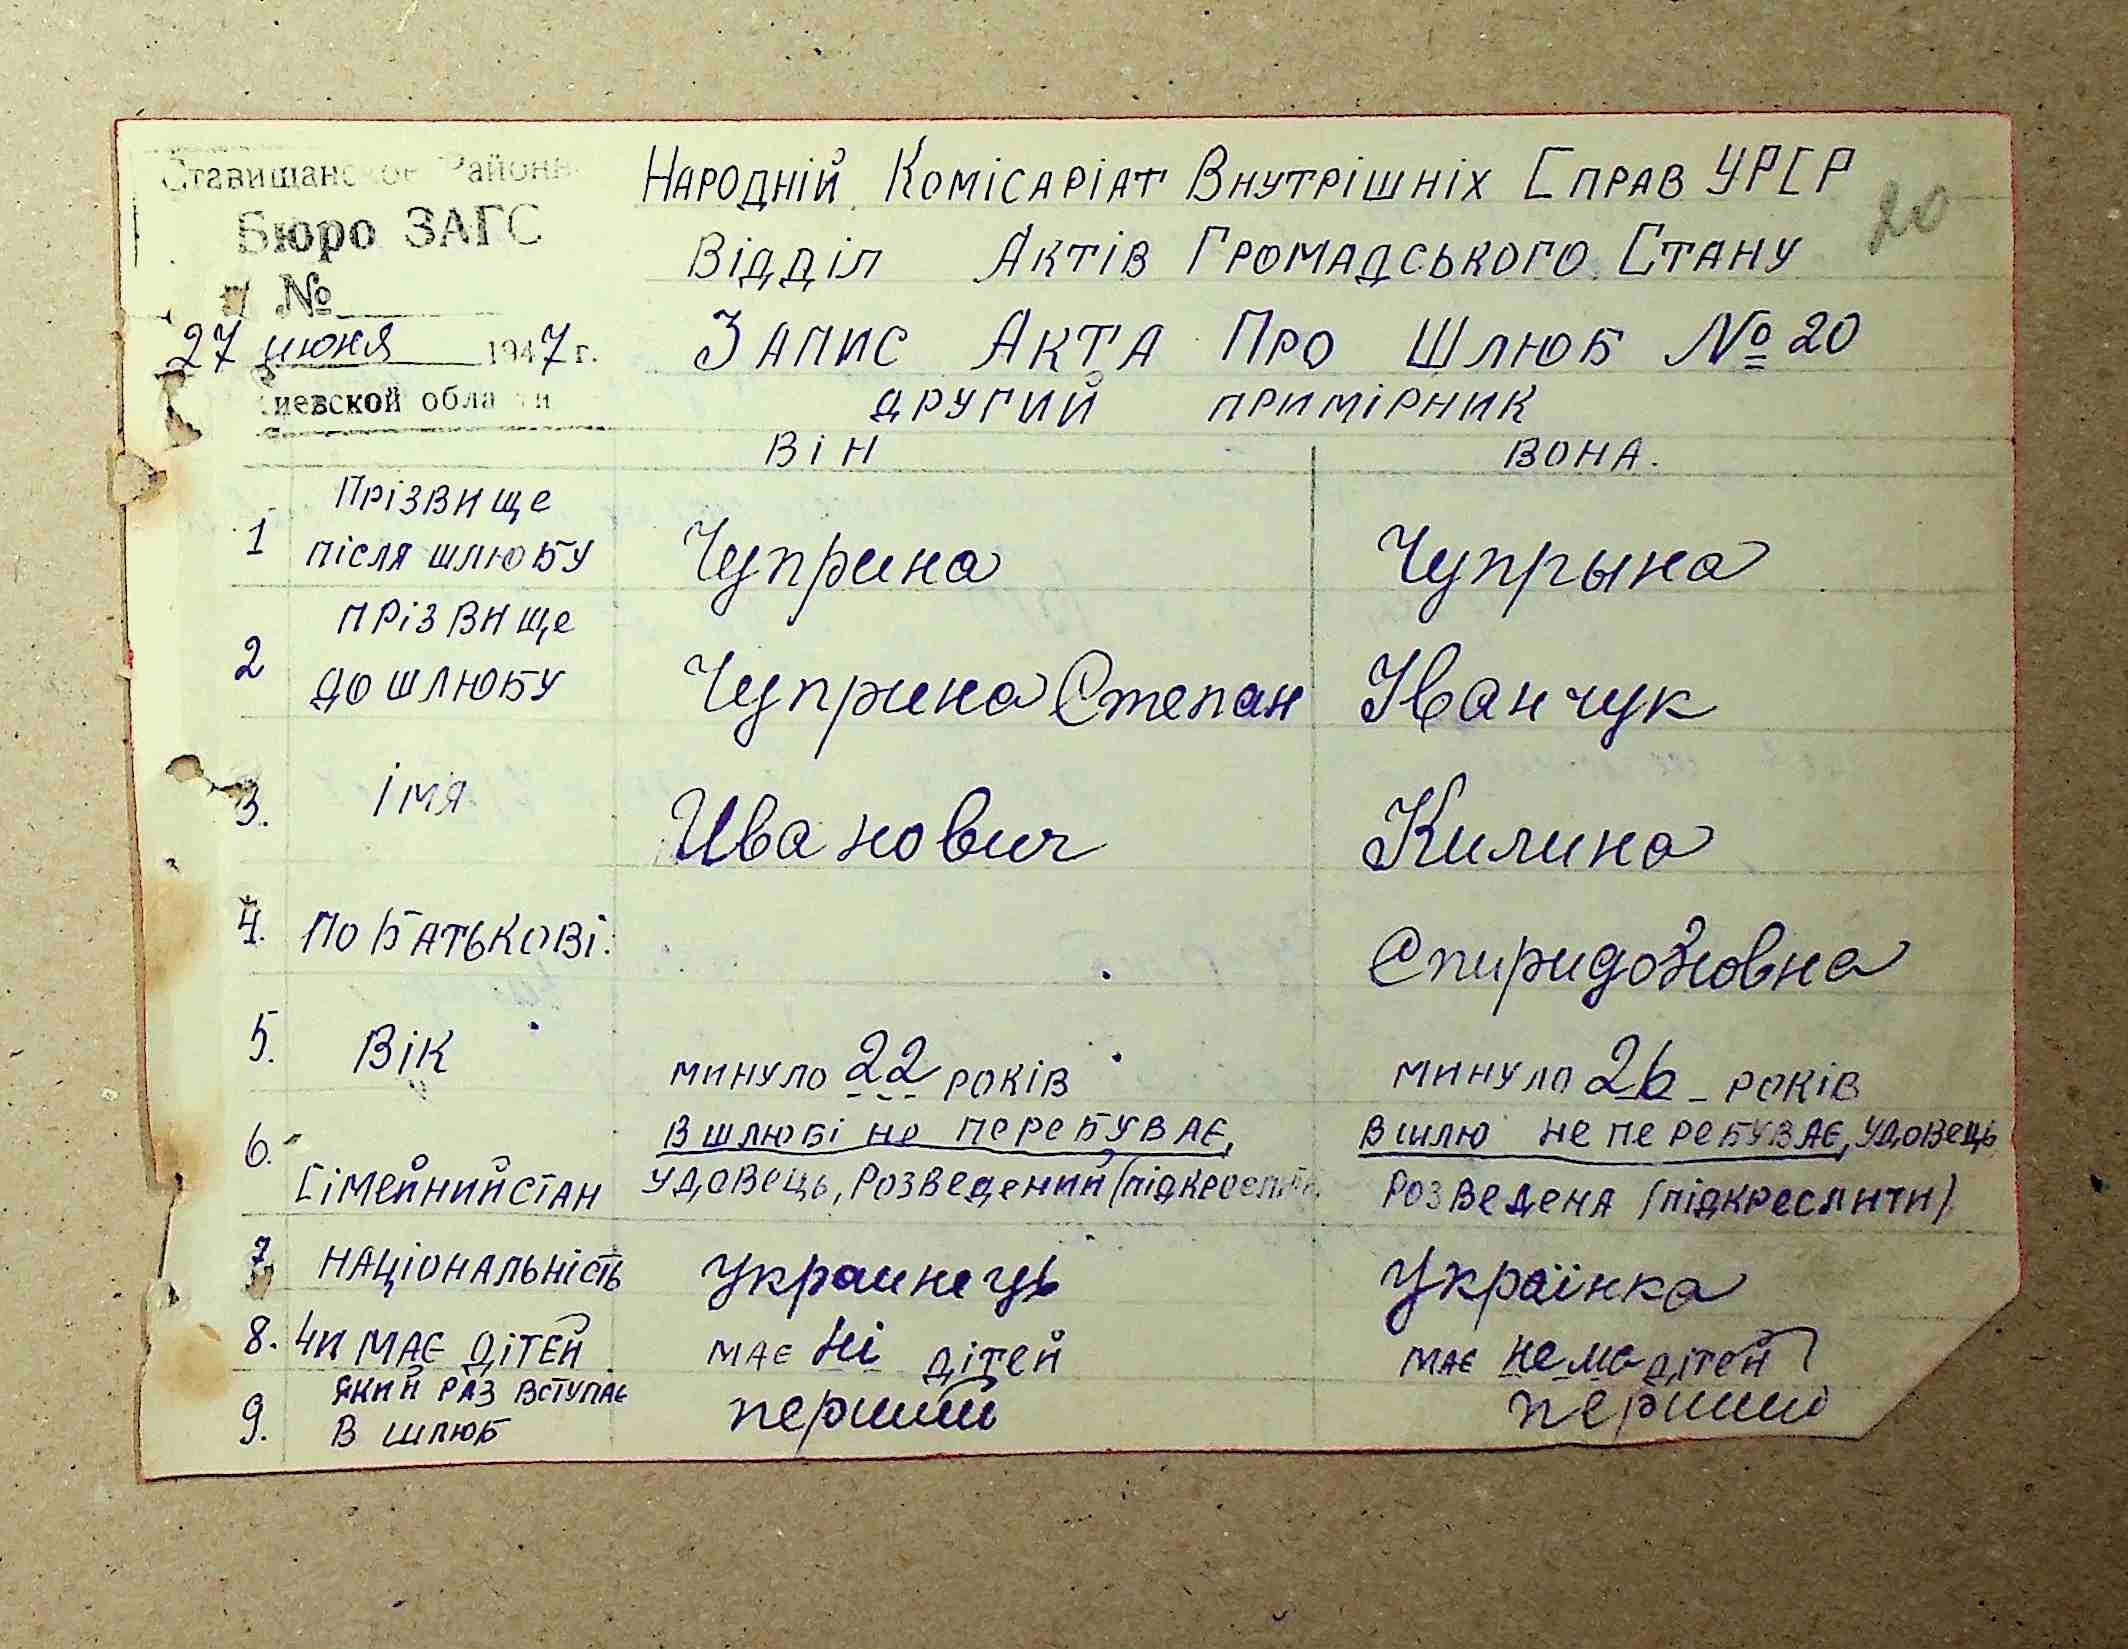 Ставищанское Районн
Бюро ЗАГС
№
27 июня 1947 г.
Киевской области
20
Народній Комісаріат Внутрішніх Справ УРСР
Відділ Актів Громадського Стану
Запис Акта Про Шлюб № 20
другий примірник
Він Вона.
1 Прізвище після шлюбу Чуприна Чупрына
2 Прізвище до шлюбу Чуприна Степан Іванчук
3. Імя Иванович Килина
4. По батькові: Спиридоновна
5. Вік минуло 22 років минуло 26 років
6. Сімейний стан
В шлюбі не перебуває, В шлю не перебуває, удовець
удовець, розведений (підкреслити розведена (підкреслити)
7 Національність украинець українка
8. Чи має дітей має ні дітей має нема дітей
9. Який раз вступає в шлюб перший перший